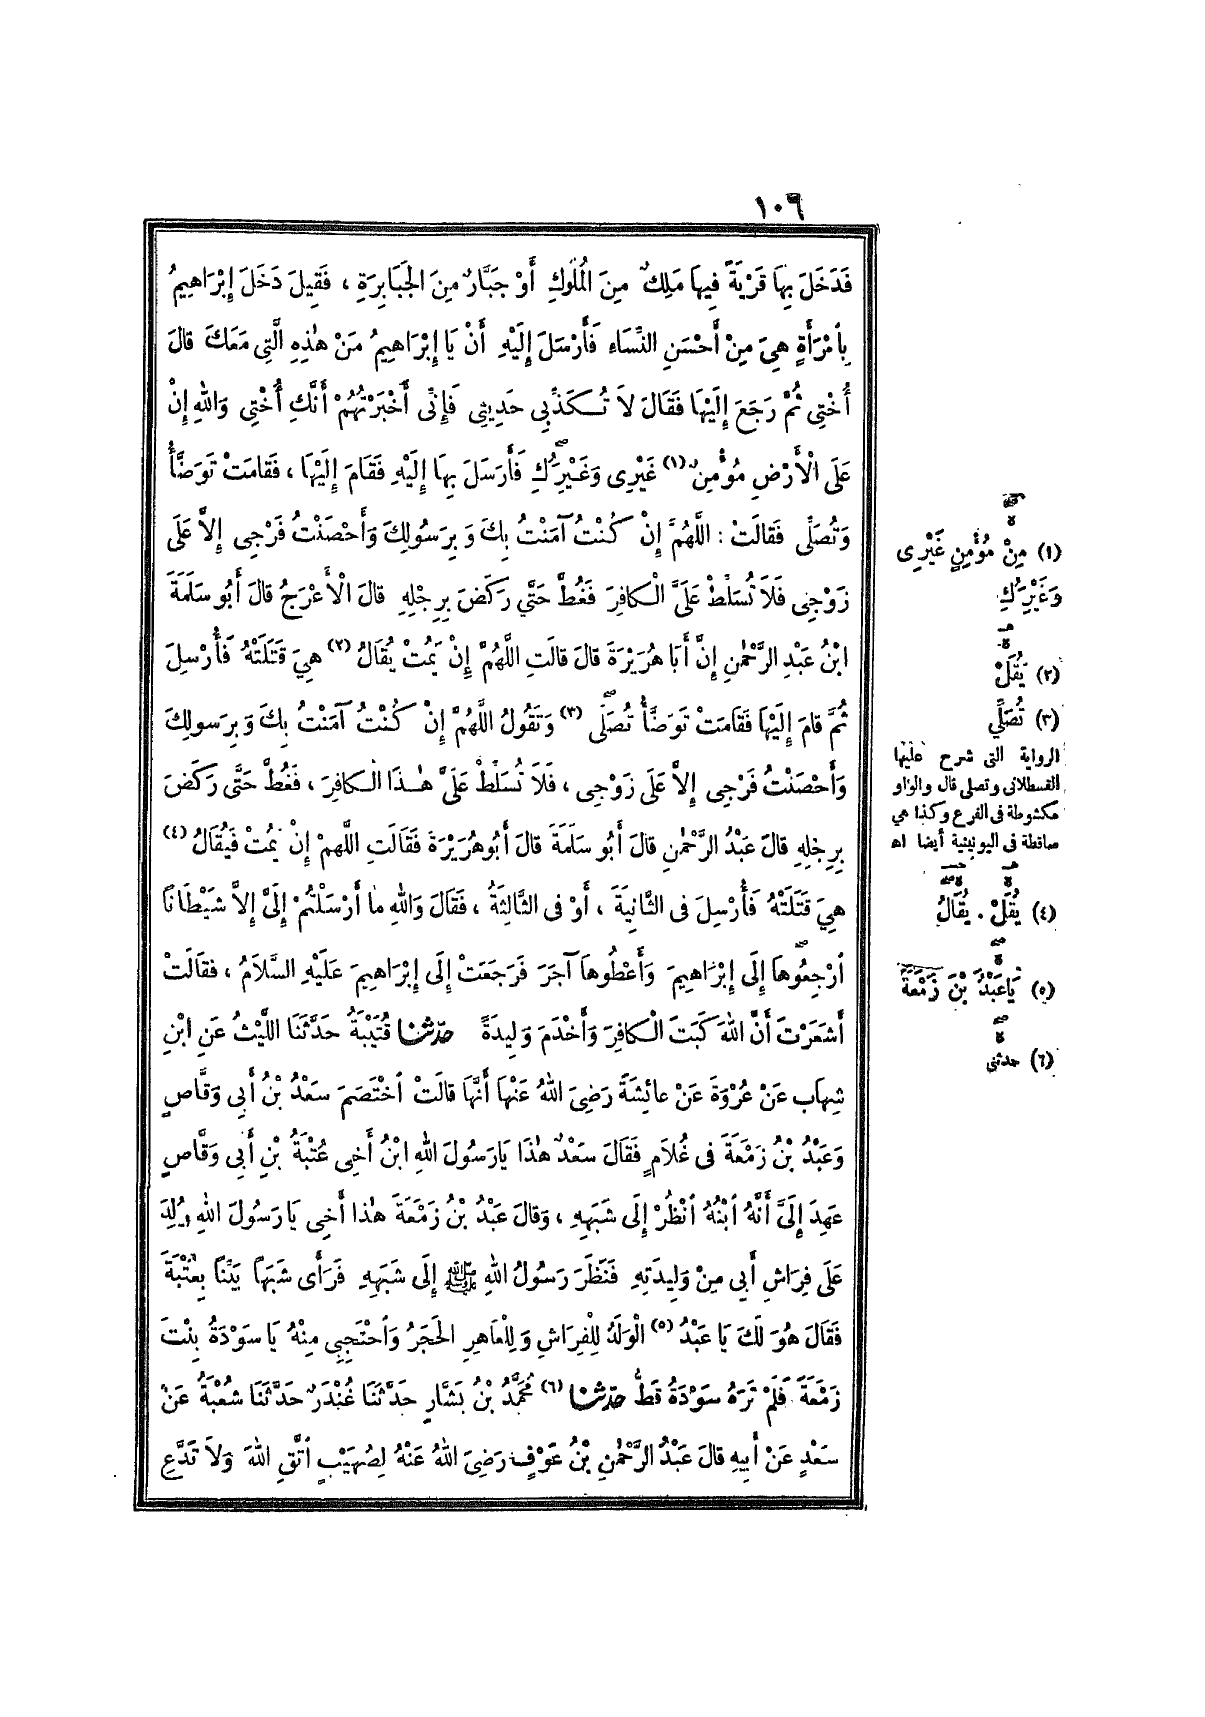 ١٠٦
فَدَخَلَ بِهَا قَرْيَةً فِيهَا مَلِكٌ مِنَ الْمُلُوكِ أَوْ جَبَّارٌ مِنَ الْجَبَابِرَةِ ، فَقِيلَ دَخَلَ إِبْرَاهِيمُ
بِأَمْرَأَةٍ هِيَ مِنْ أَحْسَنِ النِّسَاءِ فَأَرْسَلَ إِلَيْهِ أَنْ يَا إِبْرَاهِيمُ مَنْ هٰذِهِ الَّتِي مَعَكَ قالَ
أُخْتِي ثُمَّ رَجَعَ إِلَيْهَا فَقَالَ لاَ تُكَذِّبِي حَدِيثِي فَإِنِّى أَخْبَرْتُهُمْ أَنَّكِ أُخْتِي وَاللهِ إِنْ
عَلَى الْأَرْضِ مُؤْمِنٌ (١) غَيْرِى وَغَيْرُكِ فَأَرْسَلَ بِهَا إِلَيْهِ فَقَامَ إِلَيْهَا ، فَقَامَتْ تَوَضَّأُ
وَتُصَلِّى فَقَالَتْ : اللَّهُمَّ إِنْ كُنْتُ آمَنْتُ بِكَ وَبِرَسُولِكَ وَأَحْصَنْتُ فَرْجِى إِلاَّ عَلَى
زَوْجِى فَلاَ تُسَلِّطْ عَلَىَّ الْكافِرَ فَغُطَّ حَتَّى رَكَضَ بِرِجْلِهِ قالَ الْأَعْرَجُ قالَ أَبُو سَلَمَةَ
ابْنُ عَبْدِ الرَّحْمٰنِ إِنَّ أَبَا هُرَيْرَةَ قالَ قالَتِ اللَّهُمَّ إِنْ يَمُتْ يُقَالُ (٢) هِيَ قَتَلَتْهُ فَأُرْسِلَ
ثُمَّ قامَ إِلَيْهَا فَقَامَتْ تَوَضَّأُ تُصَلِّى (٣) وَتَقُولُ اللَّهُمَّ إِنْ كُنْتُ آمَنْتُ بِكَ وَبِرَسولِكَ
وَأَحْصَنْتُ فَرْجِى إِلاَّ عَلَى زَوْجِى ، فَلاَ تُسَلِّطْ عَلَىَّ هٰذَا الْكافِرَ ، فَغُطَّ حَتَّى رَكَضَ
بِرِجْلِهِ قالَ عَبْدُ الرَّحْمٰنِ قالَ أَبُو سَلَمَةَ قالَ أَبُو هُرَيْرَةَ فَقَالَتِ اللَّهُمَّ إِنْ يَمُتْ فَيُقَالُ (٤)
هِيَ قَتَلَتْهُ فَأُرْسِلَ فى الثَّانِيَةِ ، أَوْ فى الثَّالِثَةِ ، فَقَالَ وَاللهِ ما أَرْسَلْتُمْ إِلَىَّ إِلاَّ شَيْطَانًا
اُرْجِعُوهَا إِلَى إِبْرَاهِيمَ وَأَعْطُوها آجَرَ فَرَجَعَتْ إِلَى إِبْرَاهِيمَ عَلَيْهِ السَّلاَمُ ، فَقَالَتْ
أَشَعَرْتَ أَنَّ اللهَ كَبَتَ الْكافِرَ وَأَخْدَمَ وَلِيدَةً حدّثنا قُتَيْبَةُ حَدَّثَنَا اللَّيْثُ عَنِ ابْنِ
شِهَابٍ عَنْ عُرْوَةَ عَنْ عائِشَةَ رَضِىَ اللهُ عَنْهَا أَنَّهَا قالَتْ اُخْتَصَمَ سَعْدُ بْنُ أَبِى وَقَّاصٍ
وَعَبْدُ بْنُ زَمْعَةَ فى غُلاَمٍ فَقَالَ سَعْدٌ هٰذَا يَا رَسُولَ اللهِ ابْنُ أَخِى عُتْبَةَ بْنِ أَبِى وَقَّاصٍ
عَهِدَ إِلَىَّ أَنَّهُ اُبْنُهُ اُنْظُرْ إِلَى شَبَهِهِ ، وَقالَ عَبْدُ بْنُ زَمْعَةَ هٰذا أَخِى يَا رَسُولَ اللهِ وُلِدَ
عَلَى فِرَاشِ أَبِى مِنْ وَلِيدَتِهِ فَنَظَرَ رَسُولُ اللهِ ﷺ إِلَى شَبَهِهِ فَرَأَى شَبَهًا بَيِّنًا بِعُتْبَةَ
فَقَالَ هُوَ لَكَ يَا عَبْدُ (٥) الْوَلَدُ لِلْفِرَاشِ وَلِلْعَاهِرِ الحَجَرُ وَاُحْتَجِبِى مِنْهُ يَا سَوْدَةُ بِنْتَ
زَمْعَةَ فَلَمْ تَرَهُ سَوْدَةُ قَطُّ حدّثنا (٦) مُحَمَّدُ بْنُ بَشَّارٍ حَدَّثَنَا غُنْدَرٌ حَدَّثَنَا شُعْبَةُ عَنْ
سَعْدٍ عَنْ أَبِيهِ قالَ عَبْدُ الرَّحْمٰنِ بْنُ عَوْفٍ رَضِىَ اللهُ عَنْهُ لِصُهَيْبٍ اُتَّقِ اللهَ وَلاَ تَدَّعِ
(١) مِنْ مُؤْمِنٍ غَيْرِى
وَغَيْرُكِ
(٢) يُقَلْ
(٣) تُصَلِّي
الرواية التى شرح عليها
القسطلانى وتصلى قال والواو
مكشوطة فى الفرع وكذا هي
ساقطة فى اليونينية أيضا اه
(٤) يُقَلْ . يُقَالُ
(٥) يَا عَبْدُ بْنَ زَمْعَةَ
(٦) حدثنى